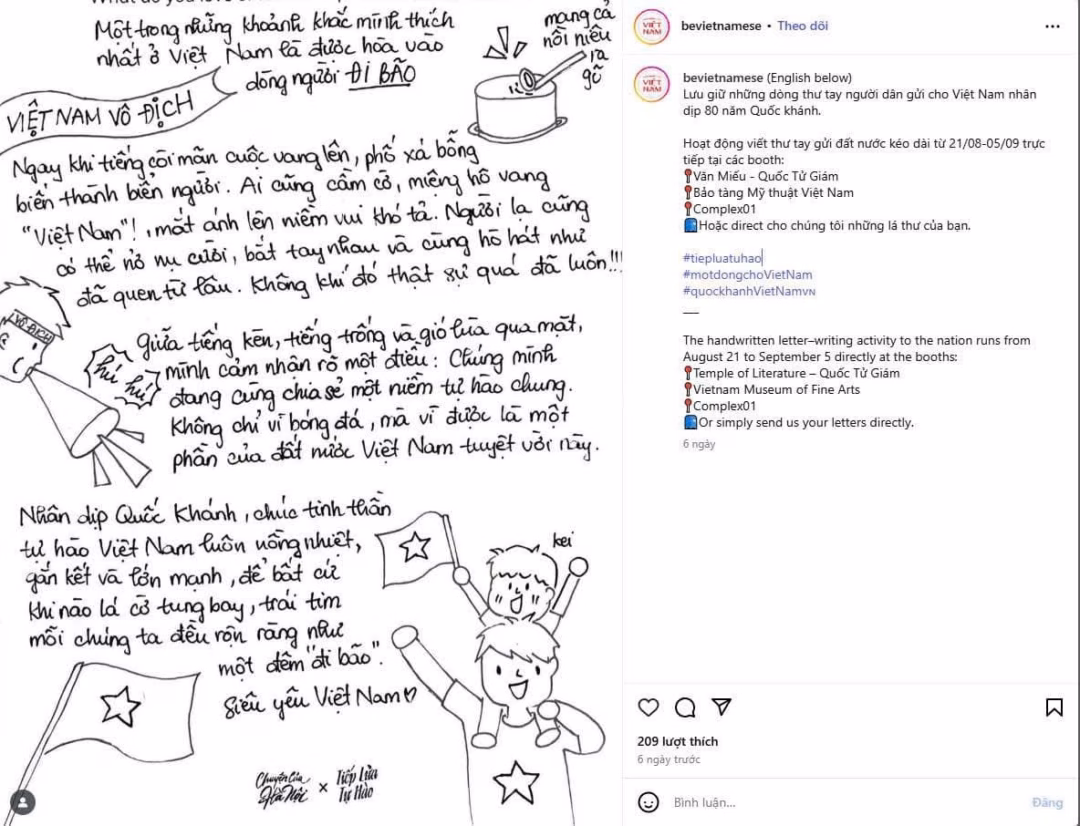 Một trong những khoảnh khắc mình thích
nhất ở Việt Nam là được hòa vào
dòng người ĐI BÃO
mang cả
nồi niêu
ra
gõ
VIỆT NAM VÔ ĐỊCH
Ngay khi tiếng còi mãn cuộc vang lên, phố xá bỗng
biến thành biển người. Ai cũng cầm cờ, miệng hô vang
"Việt Nam"!, mắt ánh lên niềm vui khó tả. Người lạ cũng
có thể nở nụ cười, bắt tay nhau và cùng hò hát như
đã quen từ lâu. Không khí đó thật sự quá đã luôn!!!
VÔ ĐỊCH
hú hú
Giữa tiếng kèn, tiếng trống và gió lùa qua mặt,
mình cảm nhận rõ một điều: Chúng mình
đang cùng chia sẻ một niềm tự hào chung.
Không chỉ vì bóng đá, mà vì được là một
phần của đất nước Việt Nam tuyệt vời này.
Nhân dịp Quốc Khánh, chúc tinh thần
tự hào Việt Nam luôn nồng nhiệt,
gắn kết và lớn mạnh, để bất cứ
khi nào lá cờ tung bay, trái tim
mỗi chúng ta đều rộn ràng như
một đêm "đi bão".
Siêu yêu Việt Nam
kei
Chuyện Của
Hà Nội
×
Tiếp Lửa
Tự Hào
VIỆT
NAM
bevietnamese • Theo dõi
VIỆT
NAM
bevietnamese (English below)
Lưu giữ những dòng thư tay người dân gửi cho Việt Nam nhân
dịp 80 năm Quốc khánh.
Hoạt động viết thư tay gửi đất nước kéo dài từ 21/08-05/09 trực
tiếp tại các booth:
📍Văn Miếu - Quốc Tử Giám
📍Bảo tàng Mỹ thuật Việt Nam
📍Complex01
Hoặc direct cho chúng tôi những lá thư của bạn.
#tiepluatuhao
#motdongchoVietNam
#quockhanhVietNamvn
__
The handwritten letter–writing activity to the nation runs from
August 21 to September 5 directly at the booths:
📍Temple of Literature – Quốc Tử Giám
📍Vietnam Museum of Fine Arts
📍Complex01
Or simply send us your letters directly.
6 ngày
209 lượt thích
6 ngày trước
Bình luận...
Đăng